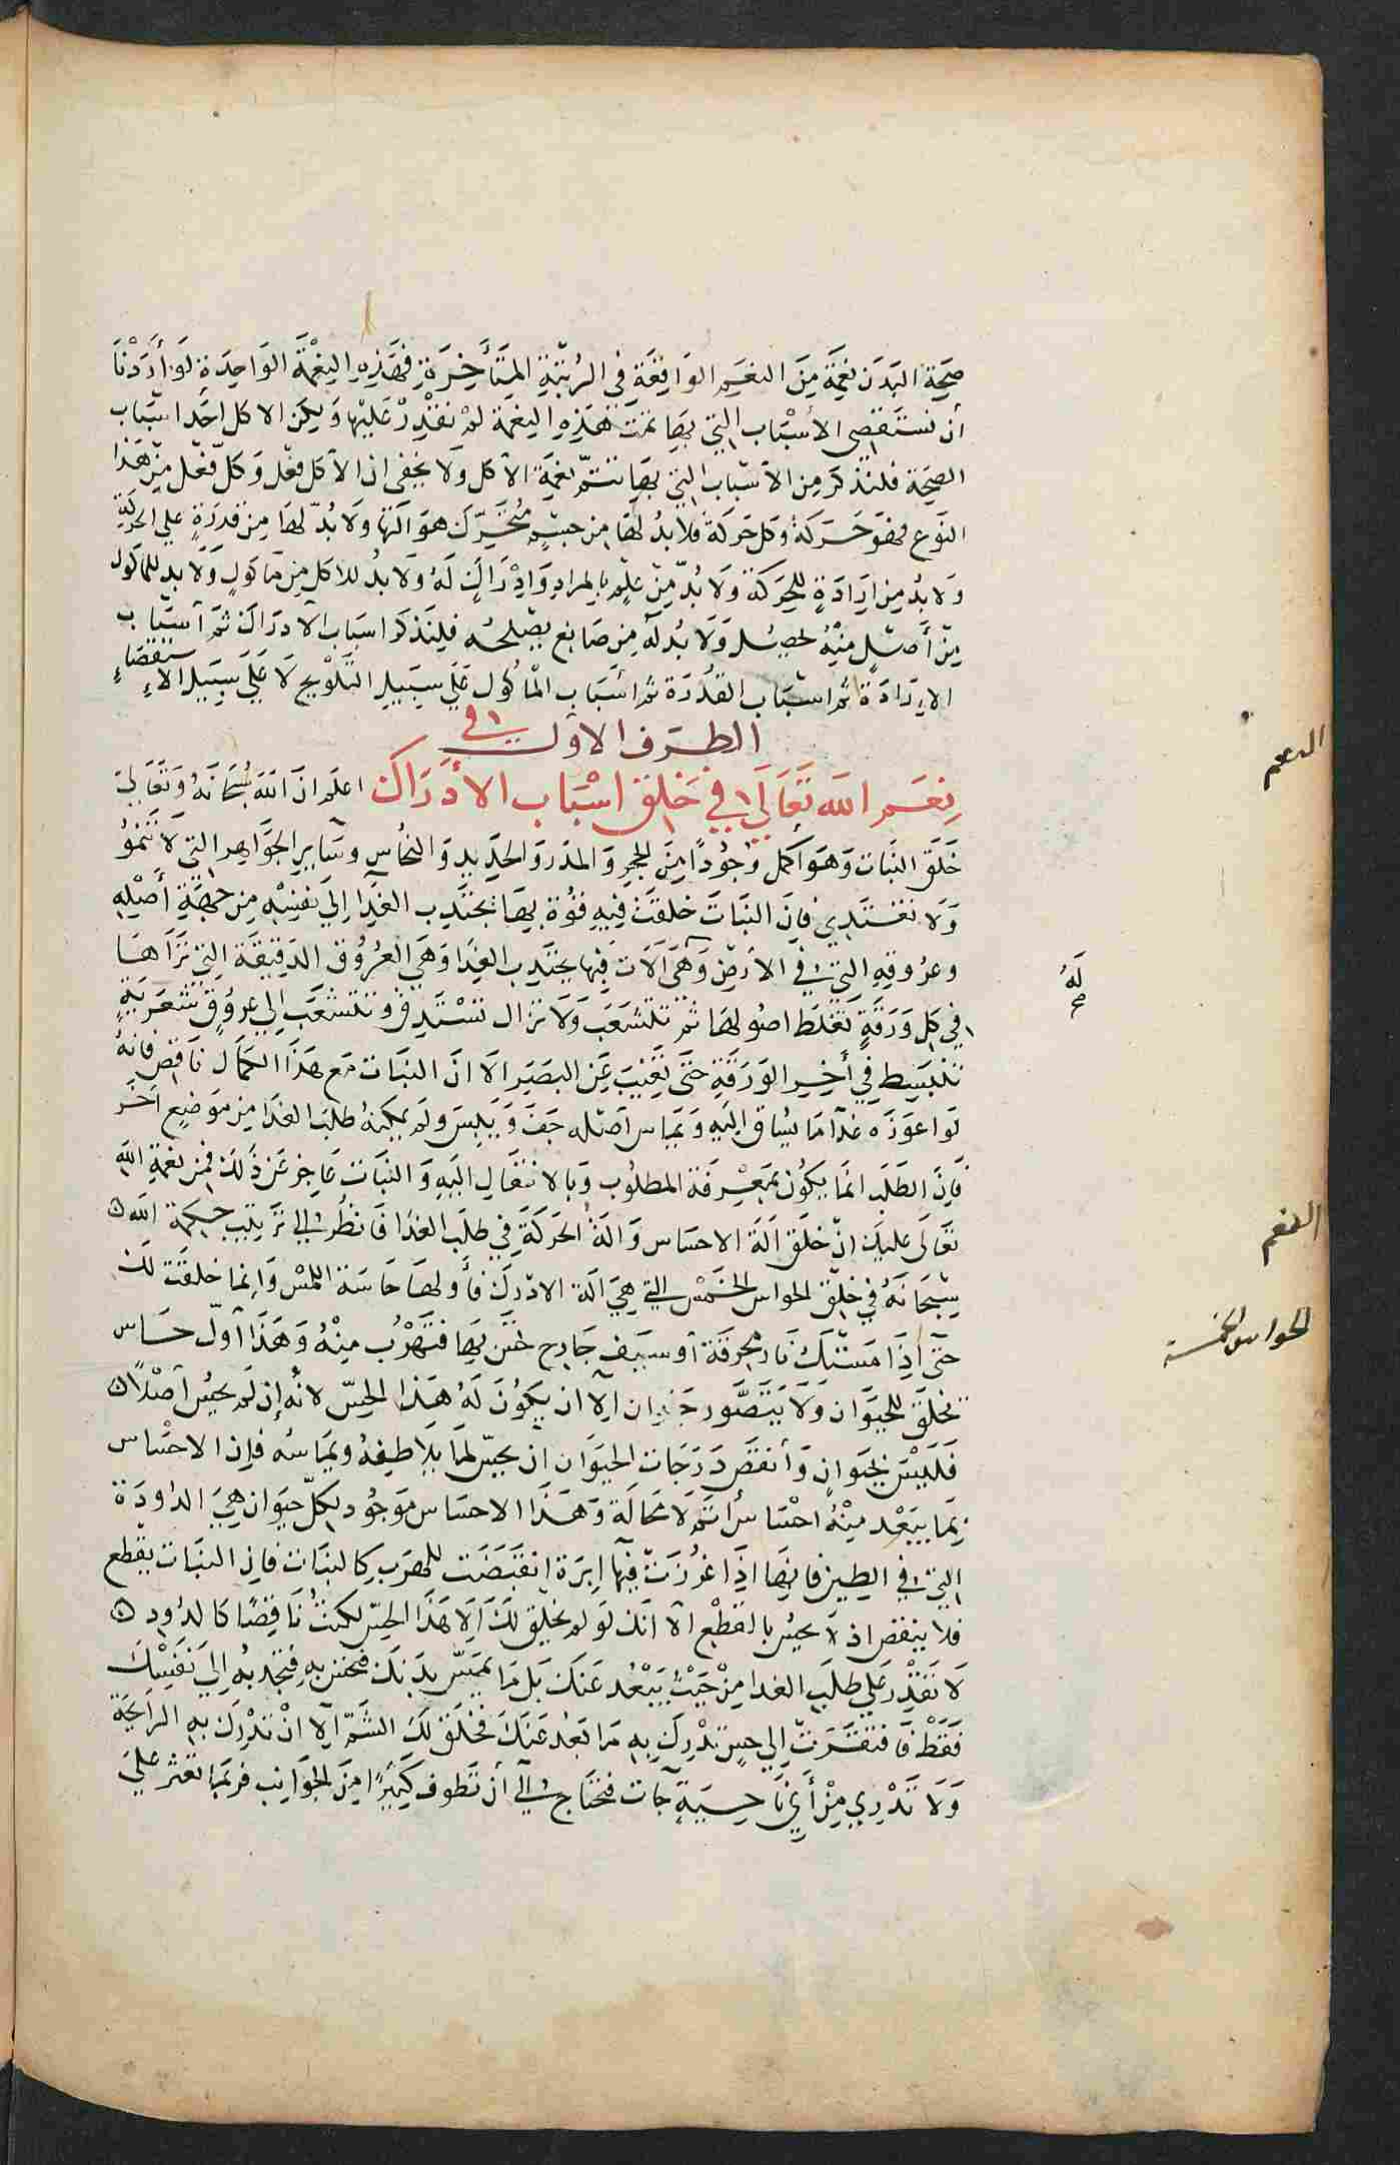 صحة البدن نعمة من النعم الواقعة في الرتبة المتأخرة فهذه النعمة الواحدة لو أردنا
أن نستقصى الأسباب التي بها تمت هذه النعمة لم نقدر عليها ولكن الاكل احد اسباب
الصحة فلنذكر من الأسباب التي بها تتم نعمة الأكل ولا يخفى ان الأكل فعل وكل فعل من هذا
النوع فهو حركة وكل حركة فلا بد لها من جسم متحرك هو آلتها ولا بد لها من قدرة على الحركة
ولا بد من ارادة للحركة ولا بد من علم بالمراد وادراك له ولا بد للاكل من مأكول ولا بد للمأكول
من أصل منه يحصل ولا بد له من صانع يصلحه فلنذكر اسباب الادراك ثم أسباب
الارادة ثم اسباب القدرة ثم أسباب المأكول على سبيل التلويح لا على سبيل الاستقصاء
الطرف الاول في
نعم الله تعالى في خلق اسباب الأدراك اعلم ان الله سبحانه وتعالى
خلق النبات وهو اكمل وجودا من الحجر والمدر والحديد والنحاس وساير الجواهر التي لا تنمو
ولا تغتدي فان النبات خلقت فيه قوة بها يجتدب الغدا إلى نفسه من جهة أصله
وعروقه التي في الأرض وهى آلات فيها يجتدب الغدا وهي العروق الدقيقة التي نراها
في كل ورقة تغلظ اصولها ثم تتشعب ولا تزال تستدق وتتشعب الى عروق شعرية
تنبسط في أخير الورقة حتى تغيب عن البصر الا ان النبات مع هذا الكمال ناقص فانه
لو اعوزه غدآ ما يساق اليه ويماس أصله جف ويبس ولم يمكنه طلب الغدا من موضع اخر
فان الطلب انما يكون بمعرفة المطلوب وبالانتقال اليه والنبات عاجز عن ذلك فمن نعمة الله
تعالى عليك ان خلق آلة الاحساس وآلة الحركة في طلب الغدا فانظر الى ترتيب حكمة الله
سبحانه في خلق الحواس الخمس التي هي آلة الادرك فأولها حاسة اللمس وانما خلقت لك
حتى اذا مستك نار محرقة أو سيف جارح تحس بها فتهرب منه وهذا أول حساس
تخلق للحيوان ولا يتصور حيوان الا ان يكون له هذا الحس لانه إن لم يحس أصلا
فليس بحيوان وأنقص درجات الحيوان ان يحس لما يلاطفه ويماسه فإن الاحساس
بما يبعد منه احساس أتم لا محالة وهذا الاحساس موجود لكل حيوان هي الداودة
التي في الطين فانها اذا غرزت فيها ابرة انقبضت للهرب كالنبات فان النبات يقطع
فلا ينقص اذ لا يحس بالقطع الا انك لو لم يخلق لك الا هذا الحس لكنت ناقصا كالدود
لا تقدر على طلب الغدا من حيث يبعد عنك بل ما يمس بدنك فتحس به فتجدبه إلى نفسك
فقط فافتقرت إلى حس تدرك به ما بعد عنك فخلق لك الشم الا ان تدرك به الرايحة
ولا تدري من أي ناحية جآت فتحتاج الى أن تطوف كثيرا من الجوانب فربما تعثر على
النعم
له
صح
النعم
الحواس الخمسة